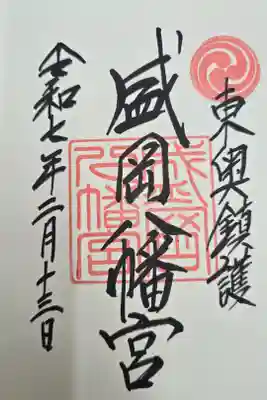 東奥鎮護
盛岡八幡宮
令和七年二月十三日
盛岡八幡宮